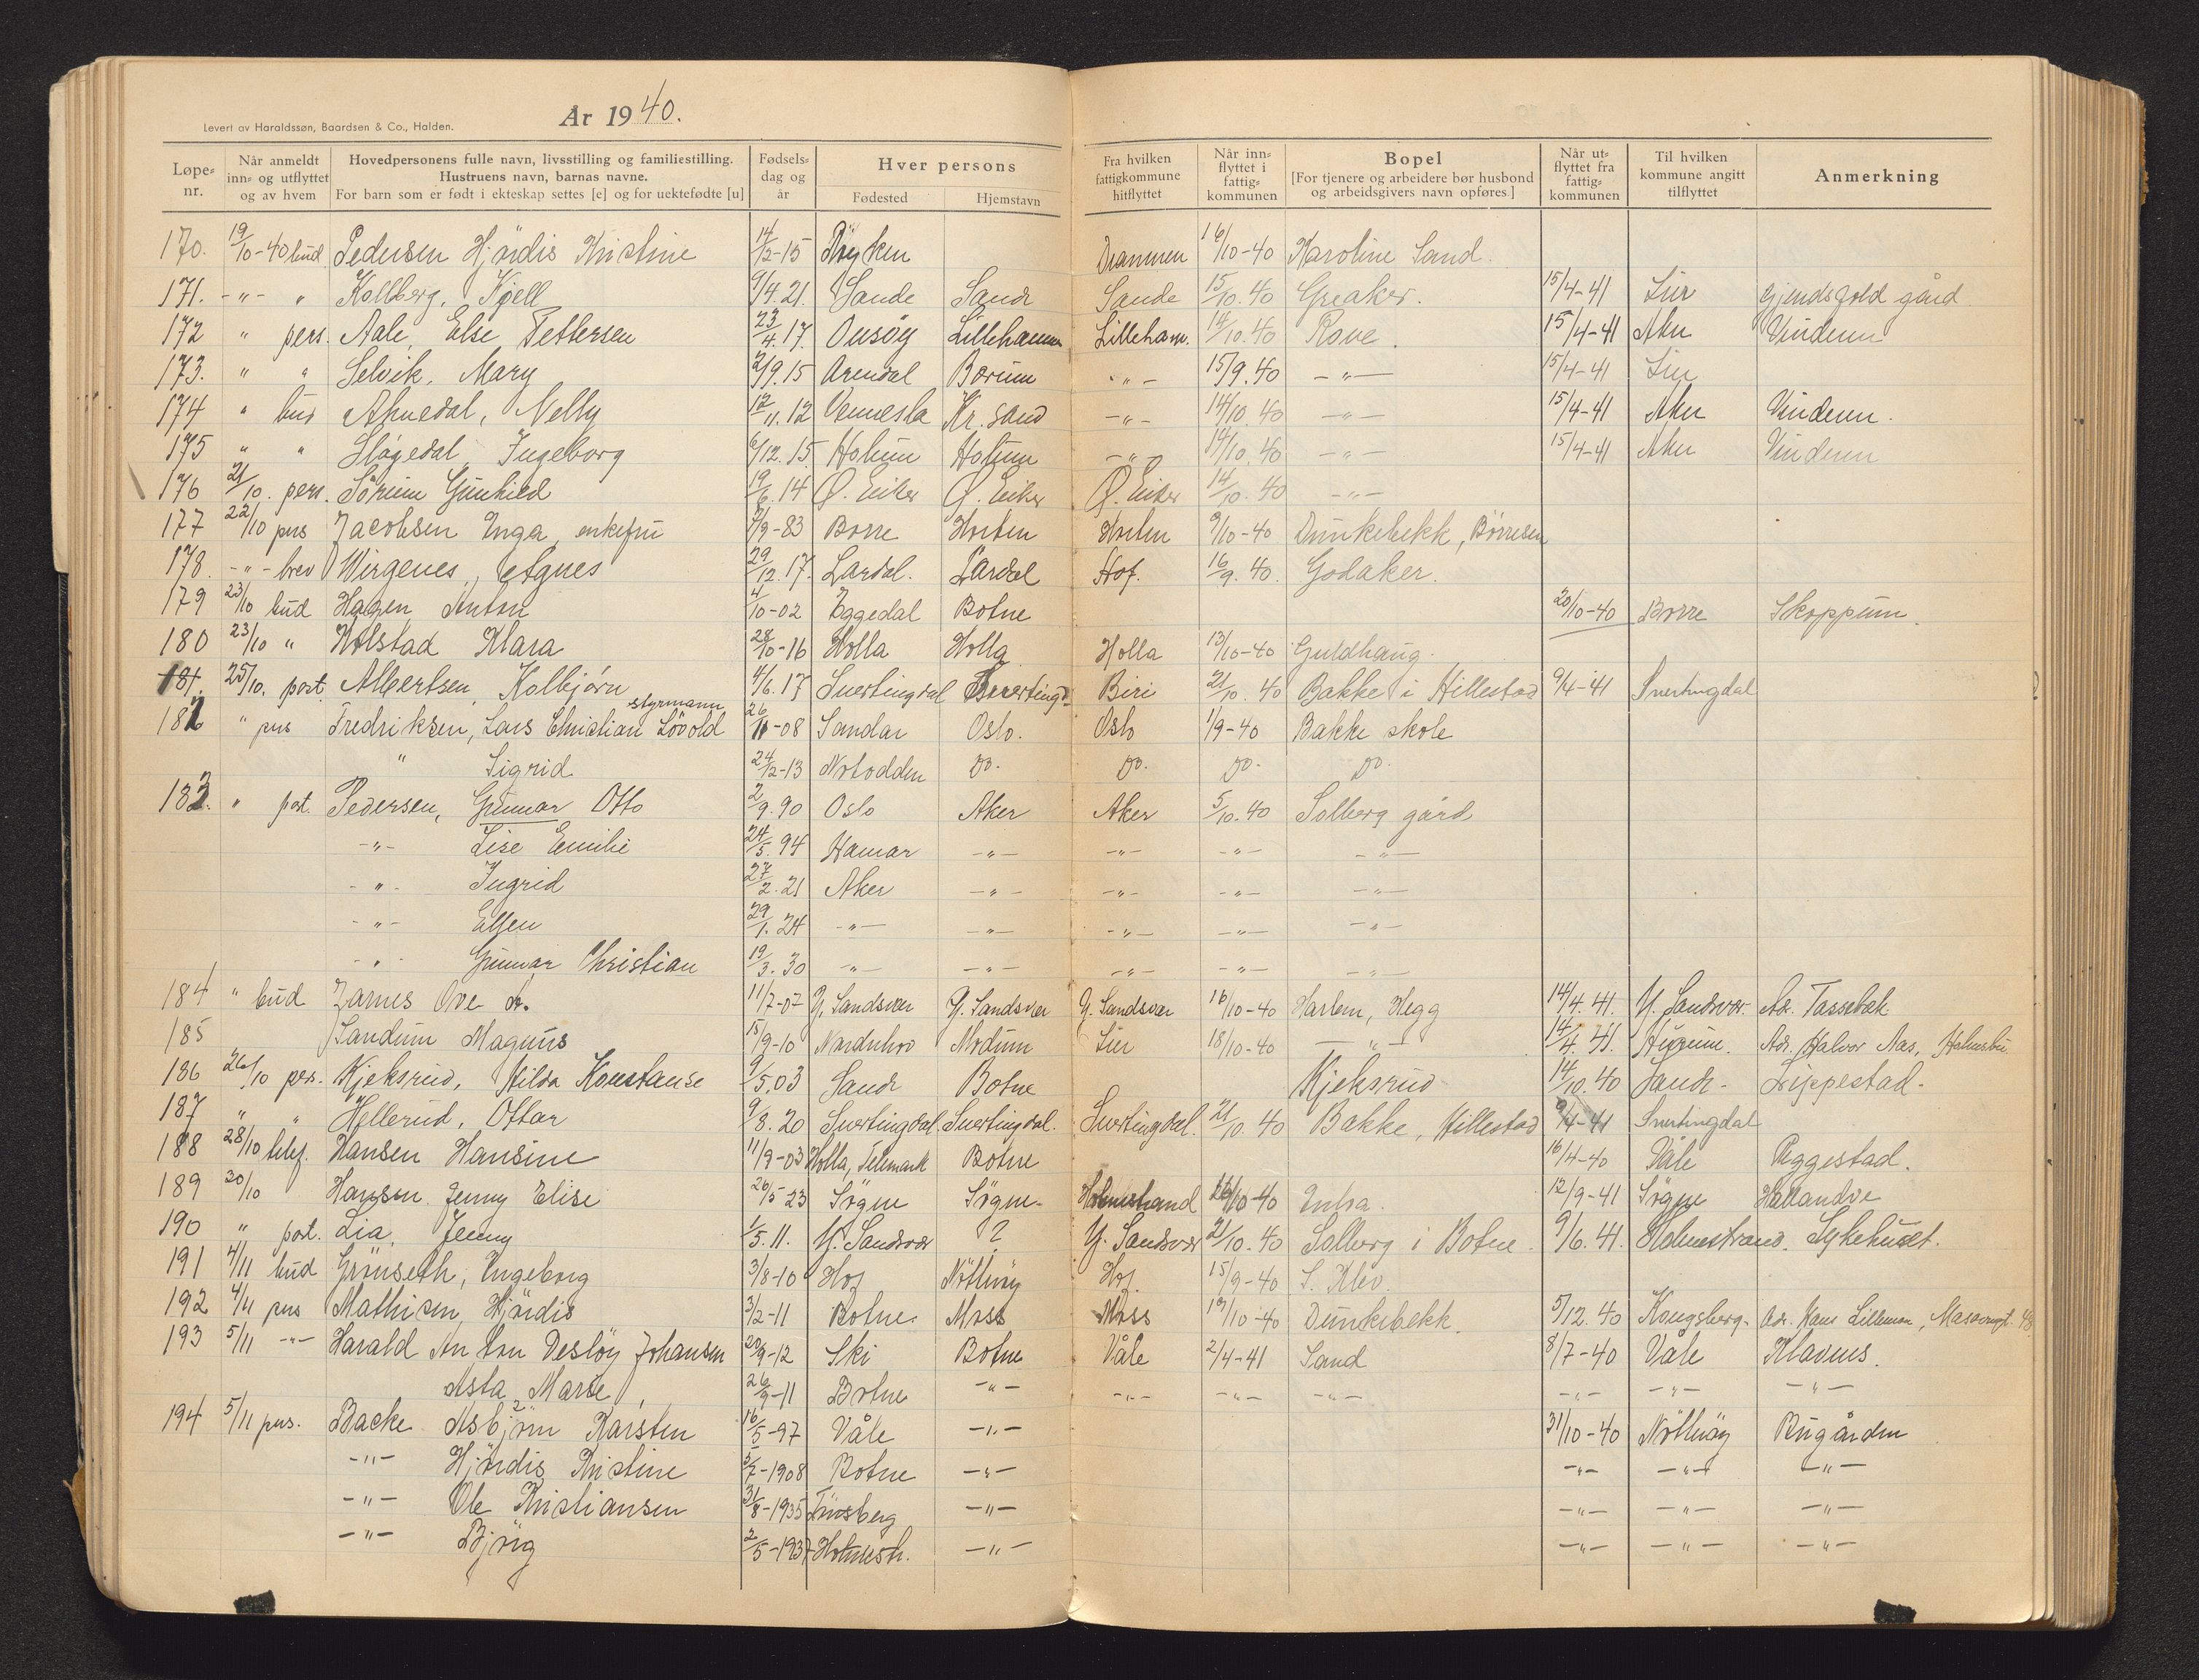 År 1940.
Levert av Haraldssøn, Baardsen & Co., Halden.
Løpe-nr. | Når anmeldt inn- og utflyttet og av hvem | Hovedpersonens fulle navn, livsstilling og familiestilling. Hustruens navn, barnas navne. For barn som er født i ekteskap settes [e] og for uektefødte [u] | Fødsels-dag og år | Hver persons Fødested | Hjemstavn | Fra hvilken fattigkommune hitflyttet | Når inn-flyttet i fattig-kommunen | Bopel [For tjenere og arbeidere bør husbond og arbeidsgivers navn opføres] | Når ut-flyttet fra fattig-kommunen | Til hvilken kommune angitt tilflyttet | Anmerkning
170. 19/10-40 bud Pedersen Hjördis Kristine 14/2-15 Röyken Drammen 16/10-40 Karoline Sand.
171. -"- " Kollberg, Kjell 9/4.21. Sande Sande Sande 15/10.40 Greaker. 15/4-41 Lier gård
172 " pers. Aale, Else Pettersen 23/4.17. Onsöy Lillehammer Lilleham. 14/10.40 Rove. 15/4-41 Aker Vinderen
173. " " Selvik, Mary 2/9.15 Arendal Bærum -"- 15/9.40 -"- 15/4-41 Lier
174 " bud Nelly 12/11.12 Vennesla Kr.sand -"- 14/10.40 -"- 15/4-41 Aker Vinderen.
175 " " Slögedal, Ingeborg 6/12.15 Holum Holum -"- 14/10.40 -"- 15/4-41 Aker Vinderen
176 21/10. pers. Sörum Gunhild 19/6.14 Ö. Eiker Ö. Eiker Ö. Eiker 14/10.40 -"-
177 22/10 pers Jacobsen Inga, enkefru /9-83 Borre Horten Horten 9/10-40 Dunkebekk, Börresen
178. -"- brev Wirgenes, Agnes 29/12.17. Lardal. Lardal Hof. 16/9.40. Godaker.
179 23/10 bud Hagen Anton 4/10-02 Eggedal Botne 20/10-40 Borre Skoppum.
180 23/10 " Holstad Klara 28/10-16 Holla Holla Holla 13/10-40 Guldhaug.
181. 25/10. post Albertsen, Kolbjørn 4/6.17 Snertingdal Snertingd. Biri 21/10.40 Bakke i Hillestad 9/4-41 Snertingdal
182 " pers Fredriksen, Lars Christian Lövold styrmann 26/11-08 Sandar Oslo. Oslo 1/9-40 Bakke skole
" Sigrid 24/12-13 Notodden Do. Do. Do. Do.
183. " post. Pedersen, Gunnar Otto 2/9.90 Oslo Aker Aker 5/10.40 Solberg gård
-"- Lise Emilie 24/5.94 Hamar -"- -"- -"- -"-
-"- Ingrid 27/2.21 Aker -"- -"- -"- -"-
-"- Ellen 29/1.24 -"- -"- -"- -"- -"-
-"- Gunnar Christian 19/3.30 -"- -"- -"- -"- -"-
184 " bud Ove 11/7-07 Y. Sandsvær Y. Sandsvær Y. Sandsvær 16/10-40 Harlem, Hegg 14/4.41. Y. Sandsvær. Ad. Tassebæk
185 Sandum Magnus 15/9-10 Norderhov Modum Lier 18/10-40 -"- 14/4.41. Hurum. Adr. Halvor Aas, Holmsbu
186 26/10 pers. Kjeksrud, Hilda Konstanse 9/5.03 Sande Botne Kjeksrud 14/10.40 Sande. Lippestad.
187 " " Hellerud, Ottar 9/8.20 Snertingdal Snertingdal. Snertingdal. 21/10.40 Bakke, Hillestad 9/4-41 Snertingdal
188 28/10 telef. Hansen Hansine 11/9-03 Holla, Telemark Botne 16/4-40 Våle Reggestad.
189 30/10 Hansen Jenny Elise 26/5-23 Sögne Sögne. Holmestrand 16/10-40 12/9-41 Sögne Hållandve
190 " post. Lia, Jenny 1/5.11. Y. Sandsvær ? Y. Sandsvær 21/10.40 Solberg i Botne. 9/6.41. Holmestrand. Sykehuset.
191 4/11 bud Grönseth, Ingeborg 3/8-10 Hof Nötteröy Hof. 15/9-40 S. Klev.
192 4/11 pers Mathisen, Hjördis 3/2-11 Botne. Moss Moss 19/10-40 Dunkebekk. 5/12.40 Kongsberg. Adr. Hans Lilleman,
193 5/11 -"- Harald Anton Deslöy Johansen 20/9-12 Ski Botne Våle 2/4-41 Sand 8/7-40 Våle Klavens.
Asta Marie, 26/9-11 Botne -"- -"- -"- -"- -"- -"- -"-
194 5/11 pers. Backe Asbjörn Karsten 16/5-97 Våle -"- 31/10-40 Nötteröy Bugården
-"- Hjördis Kristine 5/7-1908 Botne -"- -"- -"- -"-
-"- Ole Kristiansen 31/8-1935 Tönsberg -"- -"- -"- -"-
-"- Bjørg 2/5-1937 Holmestr. -"- -"- -"- -"-